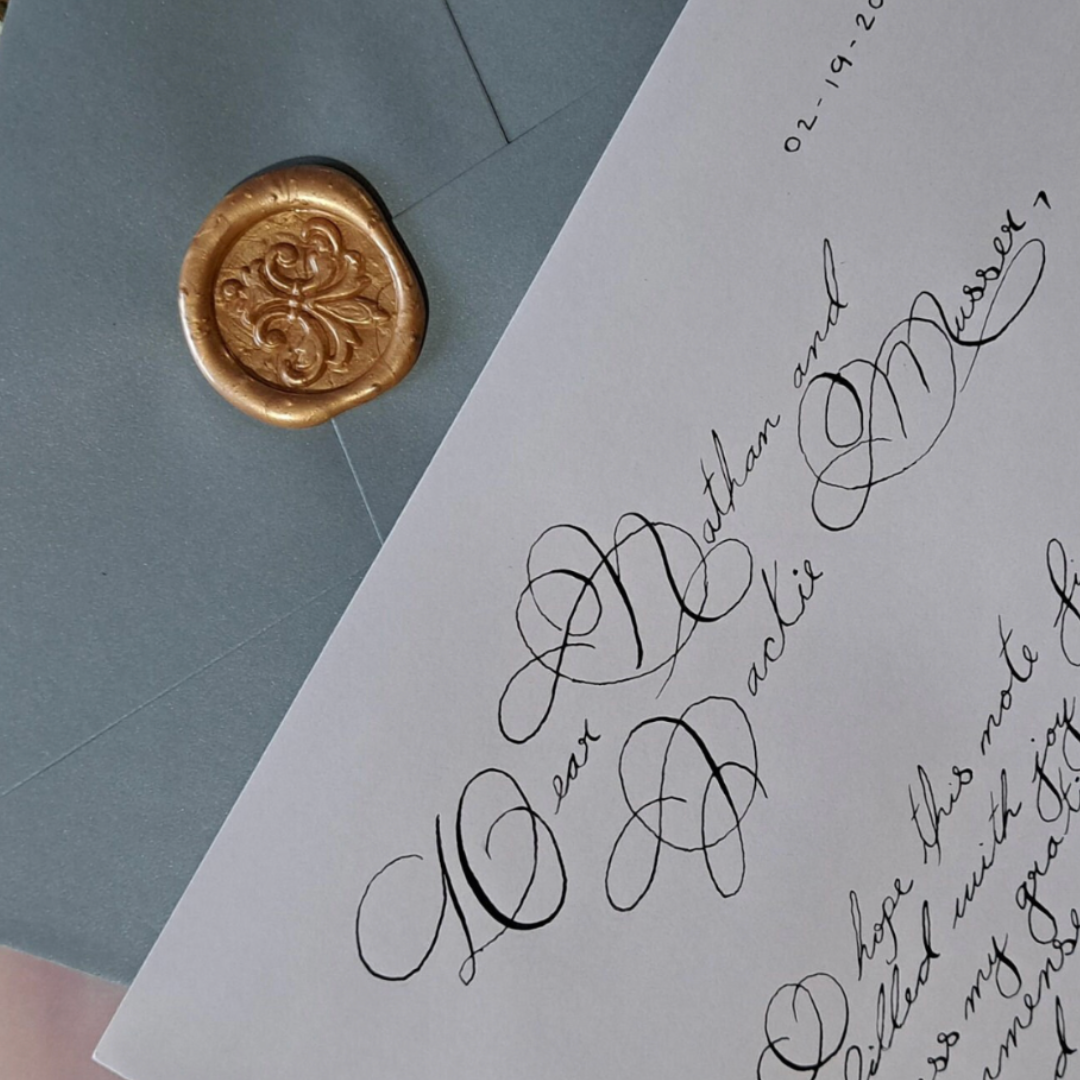 02-19-20
Dear Nathan and
Jackie Musser,
I hope this note fi
filled with joy
ess my grati
mmense
d